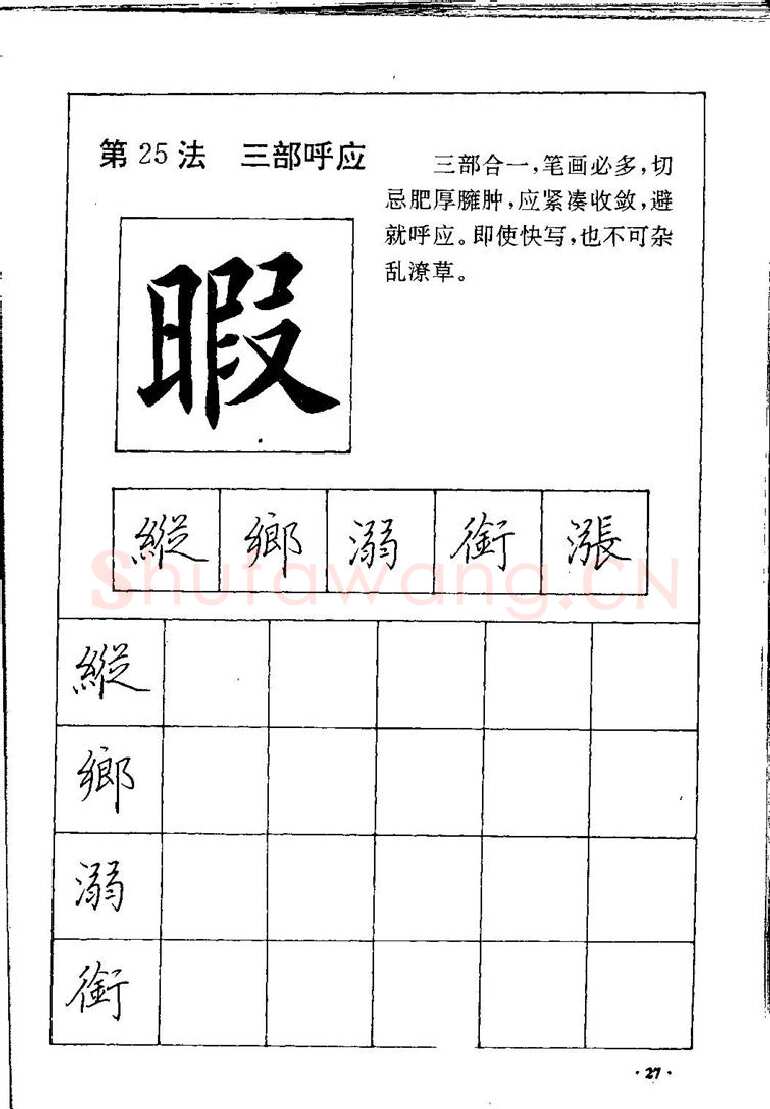 第25法　三部呼应
三部合一，笔画必多，切
忌肥厚臃肿，应紧凑收敛，避
就呼应。即使快写，也不可杂
乱潦草。
暇
縱 鄉 溺 銜 漲
Shufawang.CN
縱
鄉
溺
銜
·27·